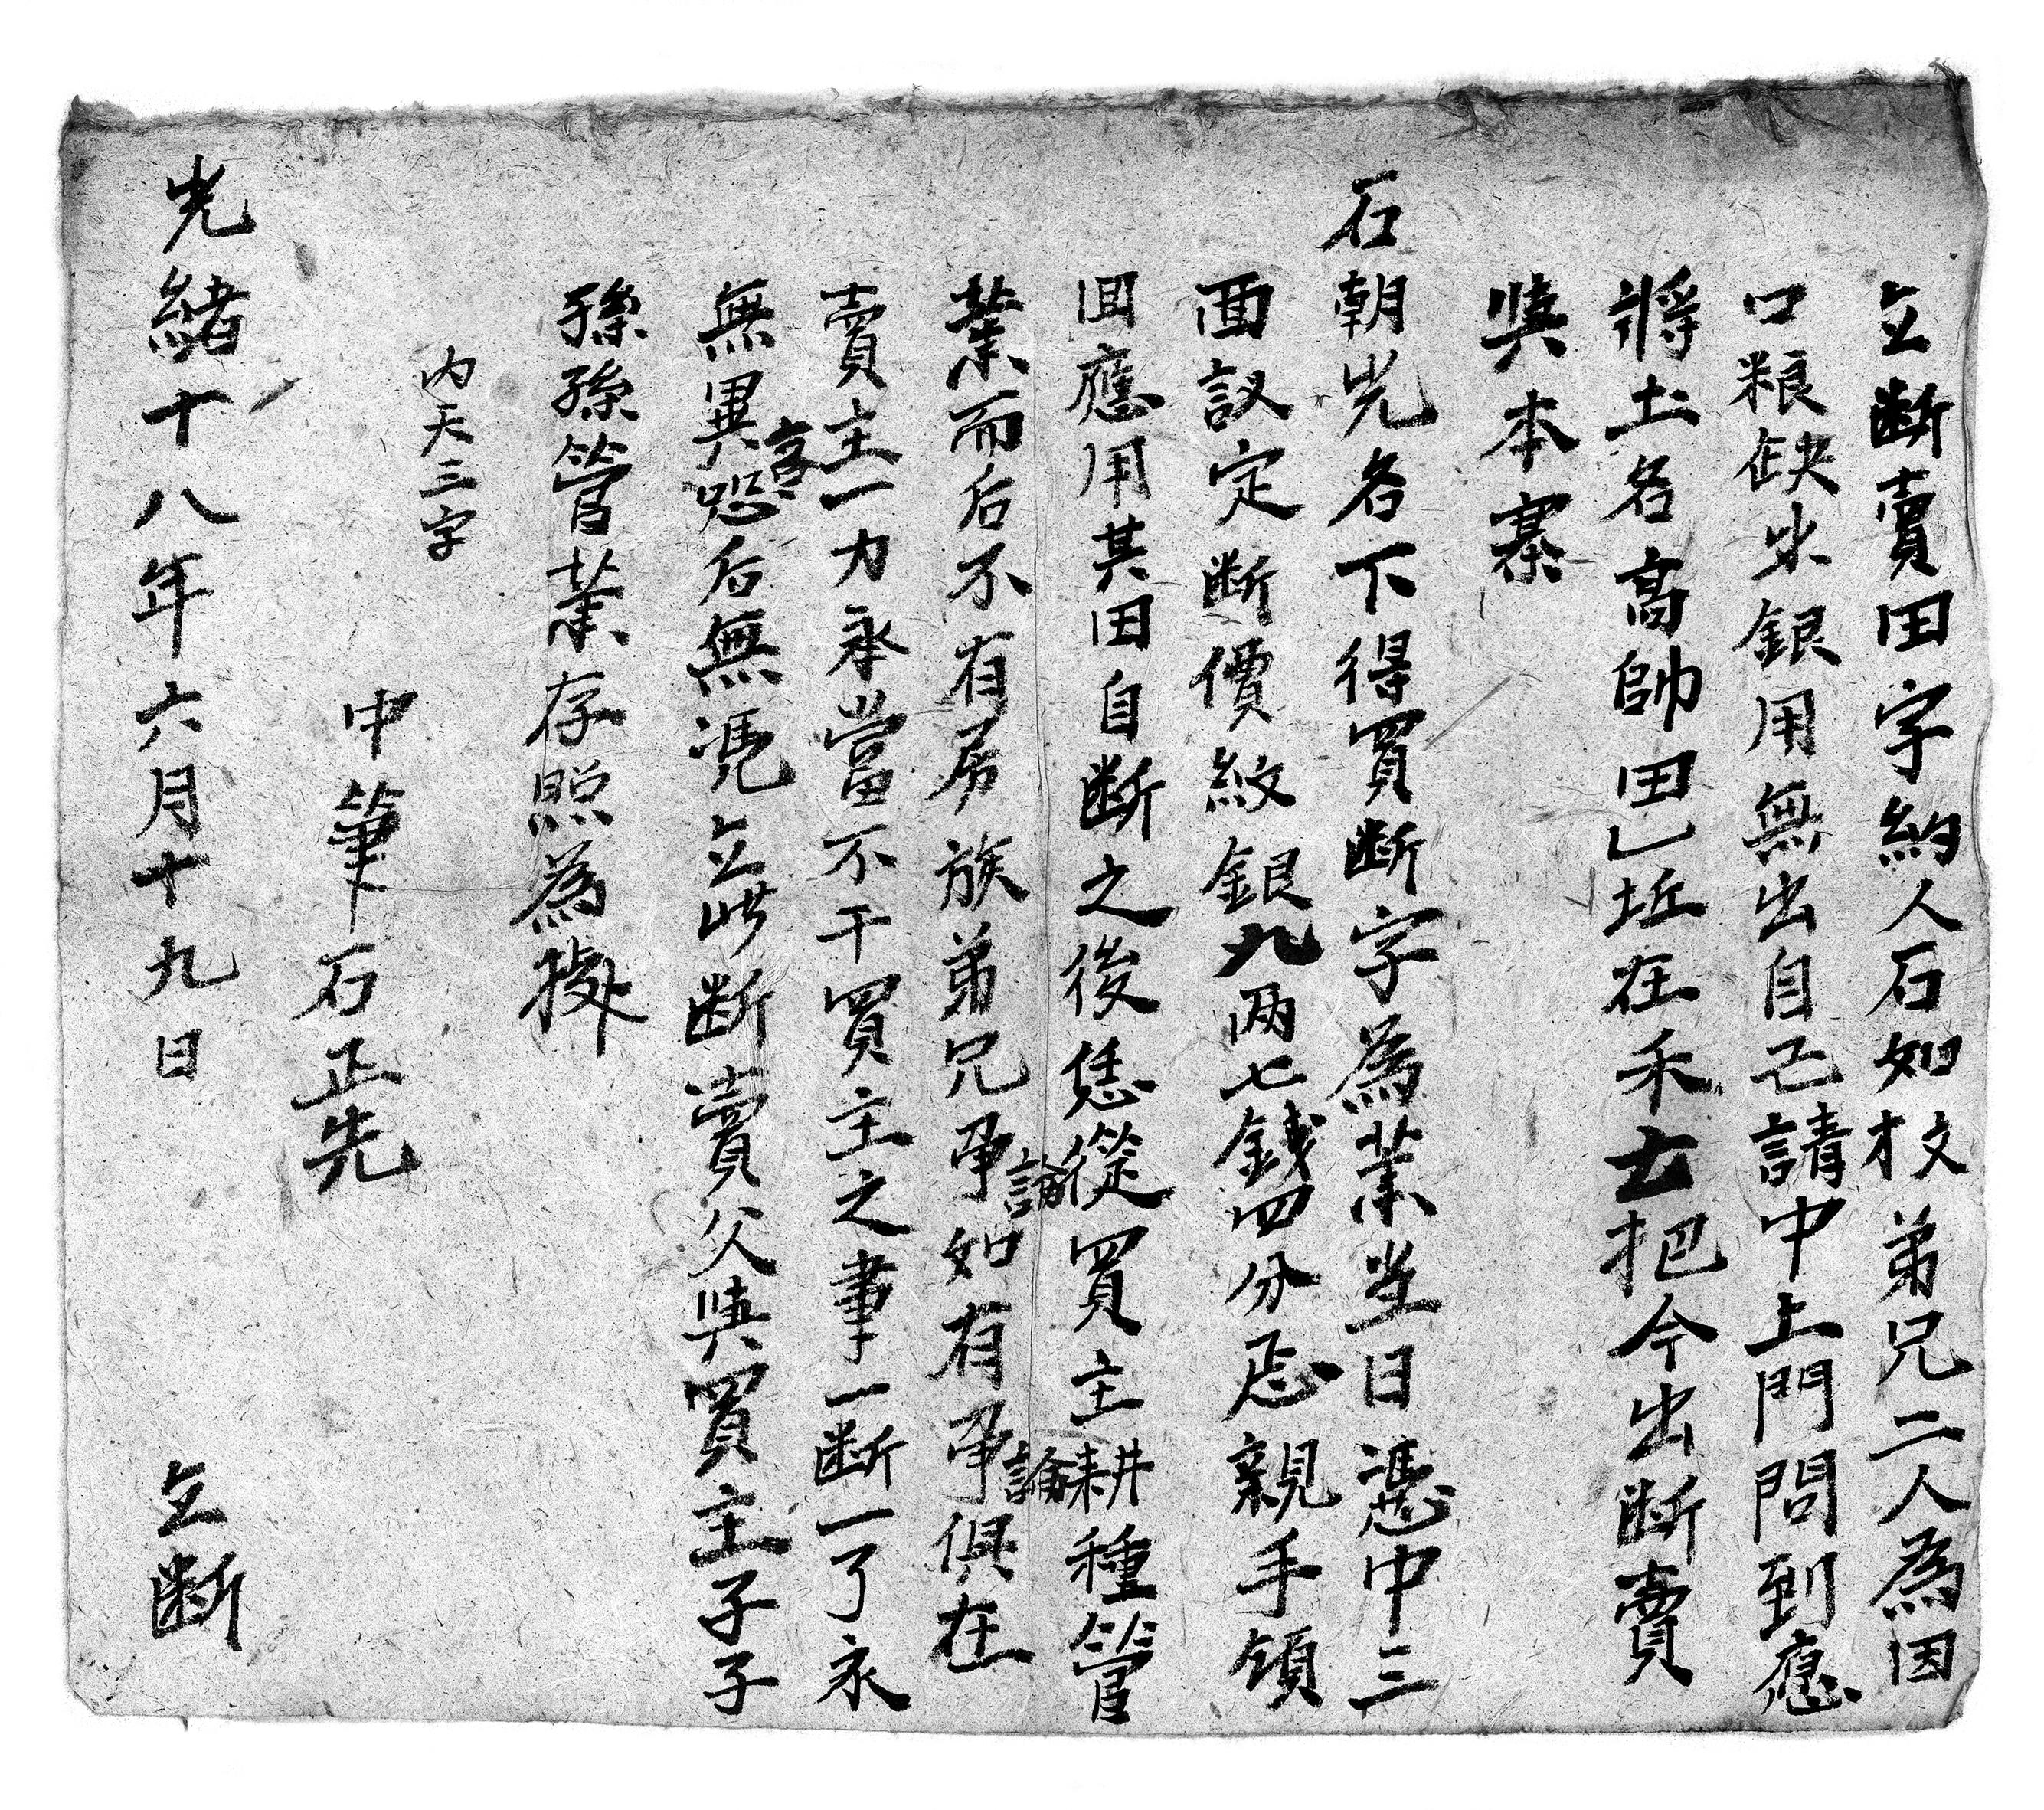 立断賣田字約人石如枚弟兄二人為因
口粮缺少銀用無出自己請中上門問到應
將土名高帥田乚坵在禾七把今出断賣
與本寨
石朝光名下得買断字為業坐日憑中三
面議定断價紋銀九两七錢四分忍親手領
回應用其田自断之後恁從買主耕種管
業而后不有房族弟兄爭論如有爭論俱在
賣主一力承當不干買主之事一断一了永
無異言恐后無憑立此断賣父與買主子子
孫孫管業存照為據
内天三字
中筆石正先
光緒十八年六月十九日 立断